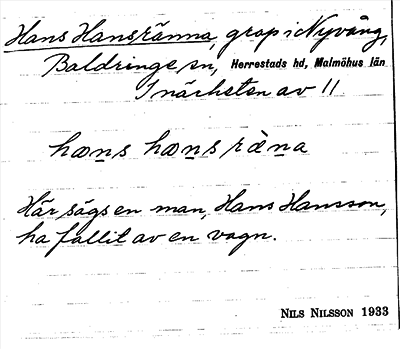 Hans Hansränna, grop i Nyvång,
Baldringe sn, Herrestads hd, Malmöhus län
I närheten av 11
hans hans ràna
Här sägs en man, Hans Hansson,
ha fallit av en vagn.
NILS NILSSON 1933